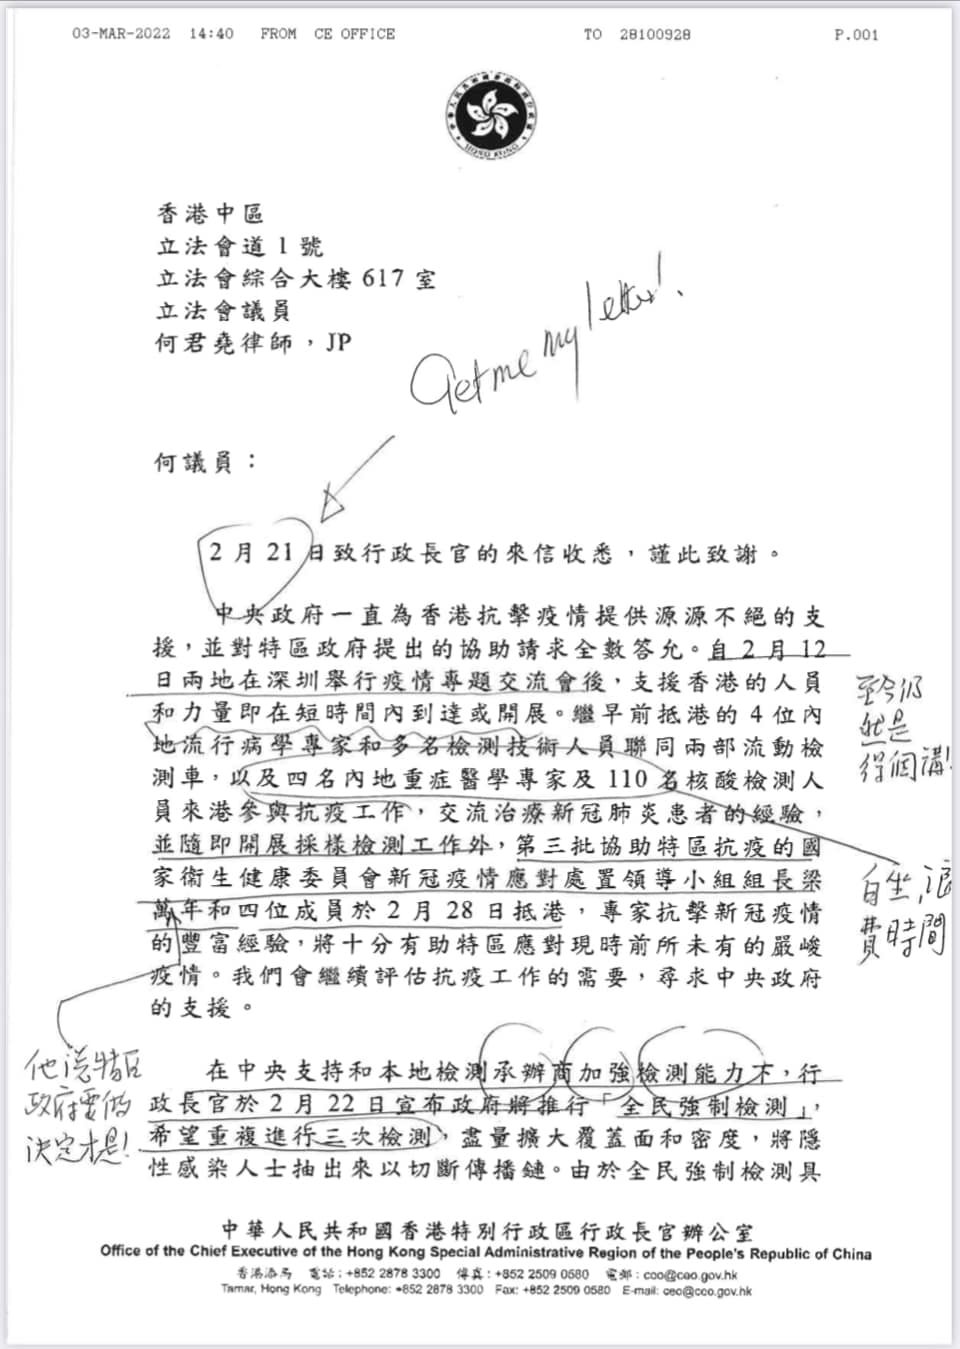 03-MAR-2022 14:40 FROM CE OFFICE TO 28100928 P.001
HONG KONG
香港中區
立法會道 1 號
立法會綜合大樓 617 室
立法會議員
何君堯律師，JP
Get me my letter!
何議員：
2 月 21 日致行政長官的來信收悉，謹此致謝。
中央政府一直為香港抗擊疫情提供源源不絕的支
援，並對特區政府提出的協助請求全數答允。自 2 月 12
日兩地在深圳舉行疫情專題交流會後，支援香港的人員
和力量即在短時間內到達或開展。繼早前抵港的 4 位內
地流行病學專家和多名檢測技術人員聯同兩部流動檢
測車，以及四名內地重症醫學專家及 110 名核酸檢測人
員來港參與抗疫工作，交流治療新冠肺炎患者的經驗，
並隨即開展採樣檢測工作外，第三批協助特區抗疫的國
家衞生健康委員會新冠疫情應對處置領導小組組長梁
萬年和四位成員於 2 月 28 日抵港，專家抗擊新冠疫情
的豐富經驗，將十分有助特區應對現時前所未有的嚴峻
疫情。我們會繼續評估抗疫工作的需要，尋求中央政府
的支援。
至今仍
然是
得個講!
白坐,浪
費時間
他謊特區
政府要做
決定才是!
在中央支持和本地檢測承辦商加強檢測能力下，行
政長官於 2 月 22 日宣布政府將推行「全民強制檢測」，
希望重複進行三次檢測，盡量擴大覆蓋面和密度，將隱
性感染人士抽出來以切斷傳播鏈。由於全民強制檢測具
中華人民共和國香港特別行政區行政長官辦公室
Office of the Chief Executive of the Hong Kong Special Administrative Region of the People's Republic of China
香港添馬 電話：+852 2878 3300 傳真：+852 2509 0580 電郵：ceo@ceo.gov.hk
Tamar, Hong Kong Telephone: +852 2878 3300 Fax: +852 2509 0580 E-mail: ceo@ceo.gov.hk